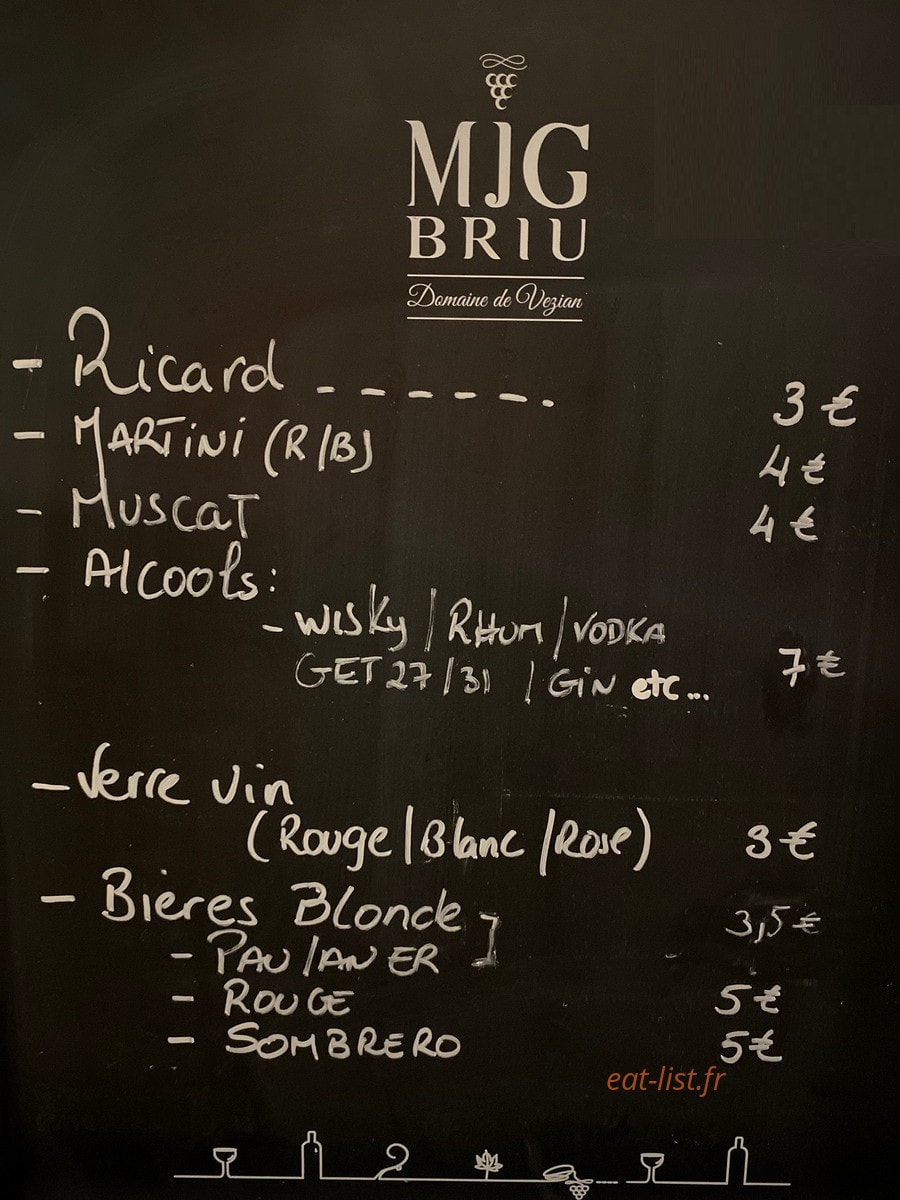 MJG
BRIU
Domaine de Vezian
- Ricard - - - - - - . 3 €
- MARTiNi (R/B) 4 €
- MuscaT 4 €
- Alcools:
- WISky / RHUM / VODKA
GET 27/31 / GiN etc... 7 €
- Verre vin
(Rouge/Blanc/Rose) 3 €
- Bières Blonde ] 3,5 €
- PAULANER
- ROUGE 5 €
- SOMBRERO 5 €
eat-list.fr